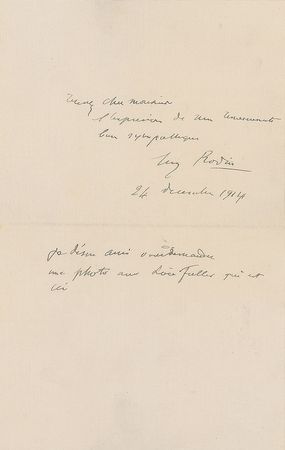 cher monsieur
l'expression de mes remerciements
bien sympathique
Aug Rodin
24 decembre 1914
je désire aussi vous demander
une photo avec Loïe Fuller qui est
ici